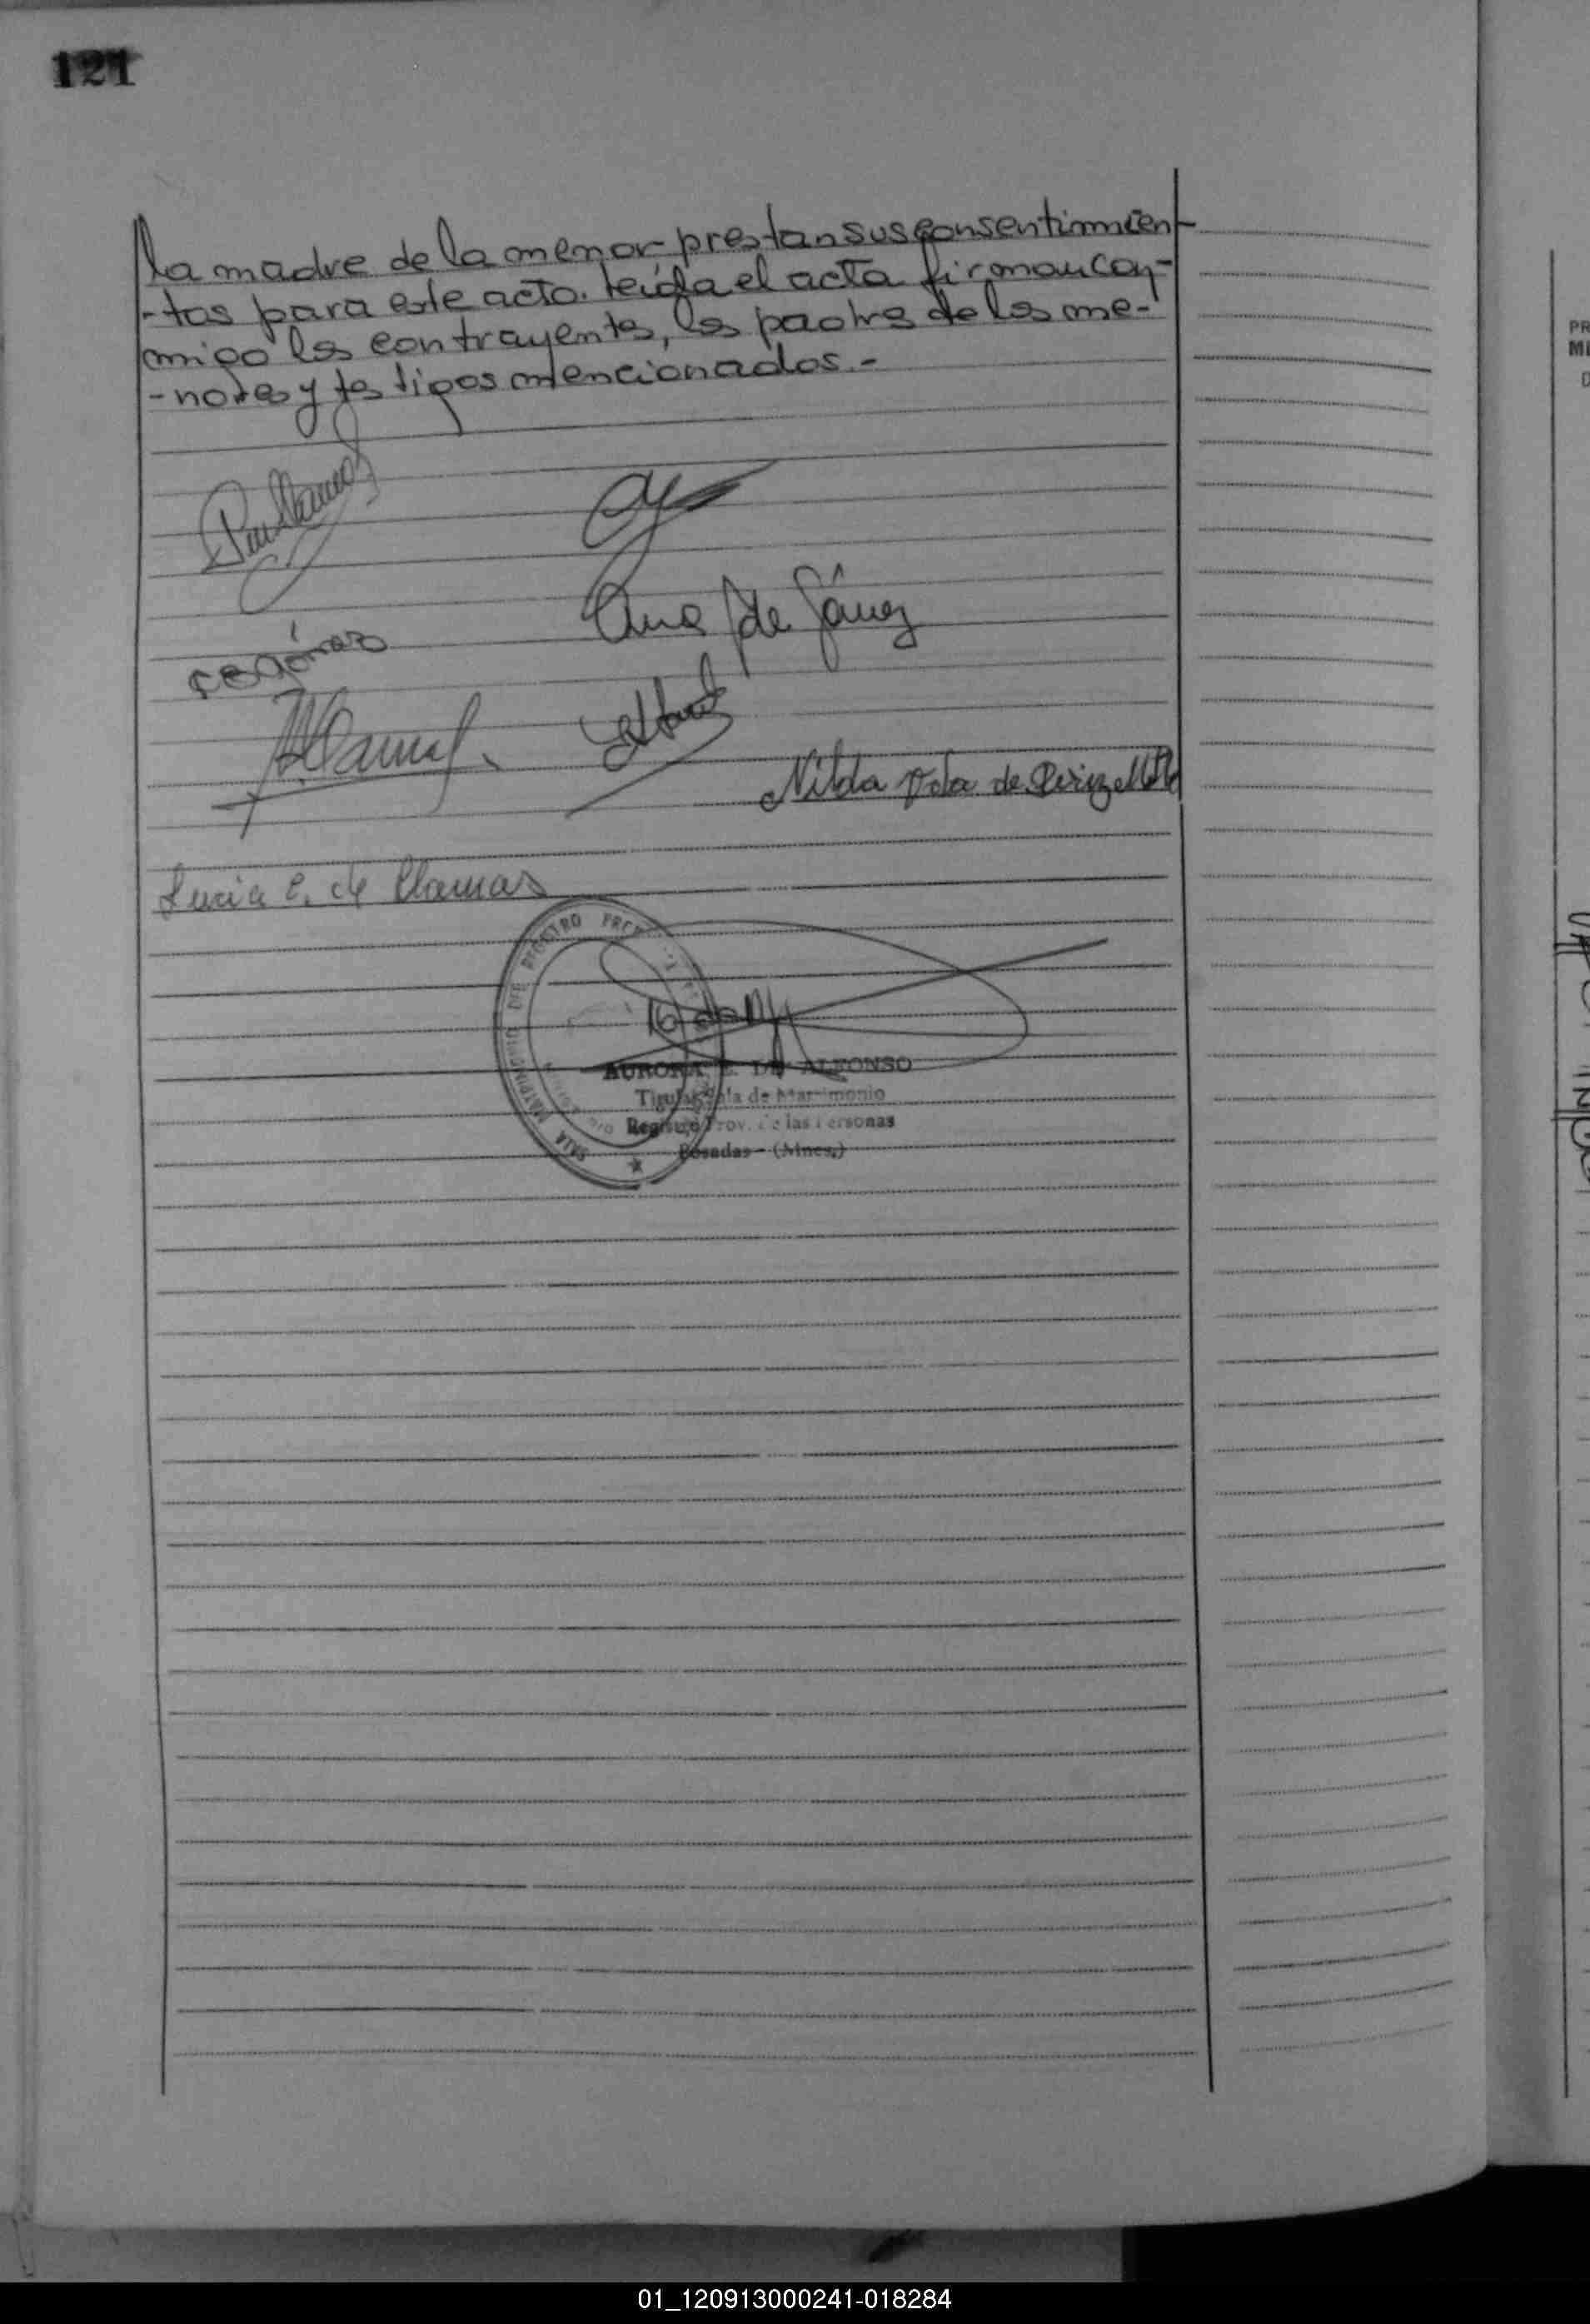 121
la madre de la menor prestan sus consentimmien
-tos para este acto. Leída el acta firman con-
migo los contrayentes, los padres de los me-
-nores y testigos mencionados.-
Ana de
Nilda de
Lucia E. de Llamas
REGISTRO
MATRIMONIO DEL
SALA
AURORA E. DE ALFONSO
Titular Sala de Matrimonio
Registro Prov. de las Personas
Posadas - (Mnes.)
PR
MI
D
01_120913000241-018284